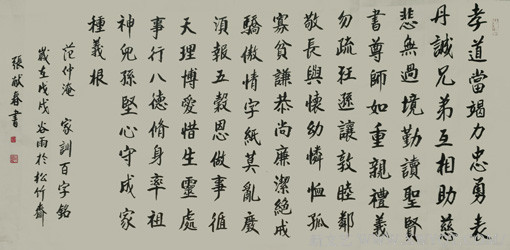 孝道當竭力忠勇表
丹誠兄弟互相助慈
悲無過境勤讀聖賢
書尊師如重親禮義
勿疏狂遜讓敦睦鄰
敬長與懷幼憐恤孤
寡貧謙恭尚廉潔絕戒
驕傲情字紙莫亂廢
須報五穀恩做事循
天理博愛惜生靈處
事行八德脩身率祖
神兒孫堅心守成家
種義根
范仲淹 家訓百字銘
歲在戊戌谷雨於松竹齋
張献春書